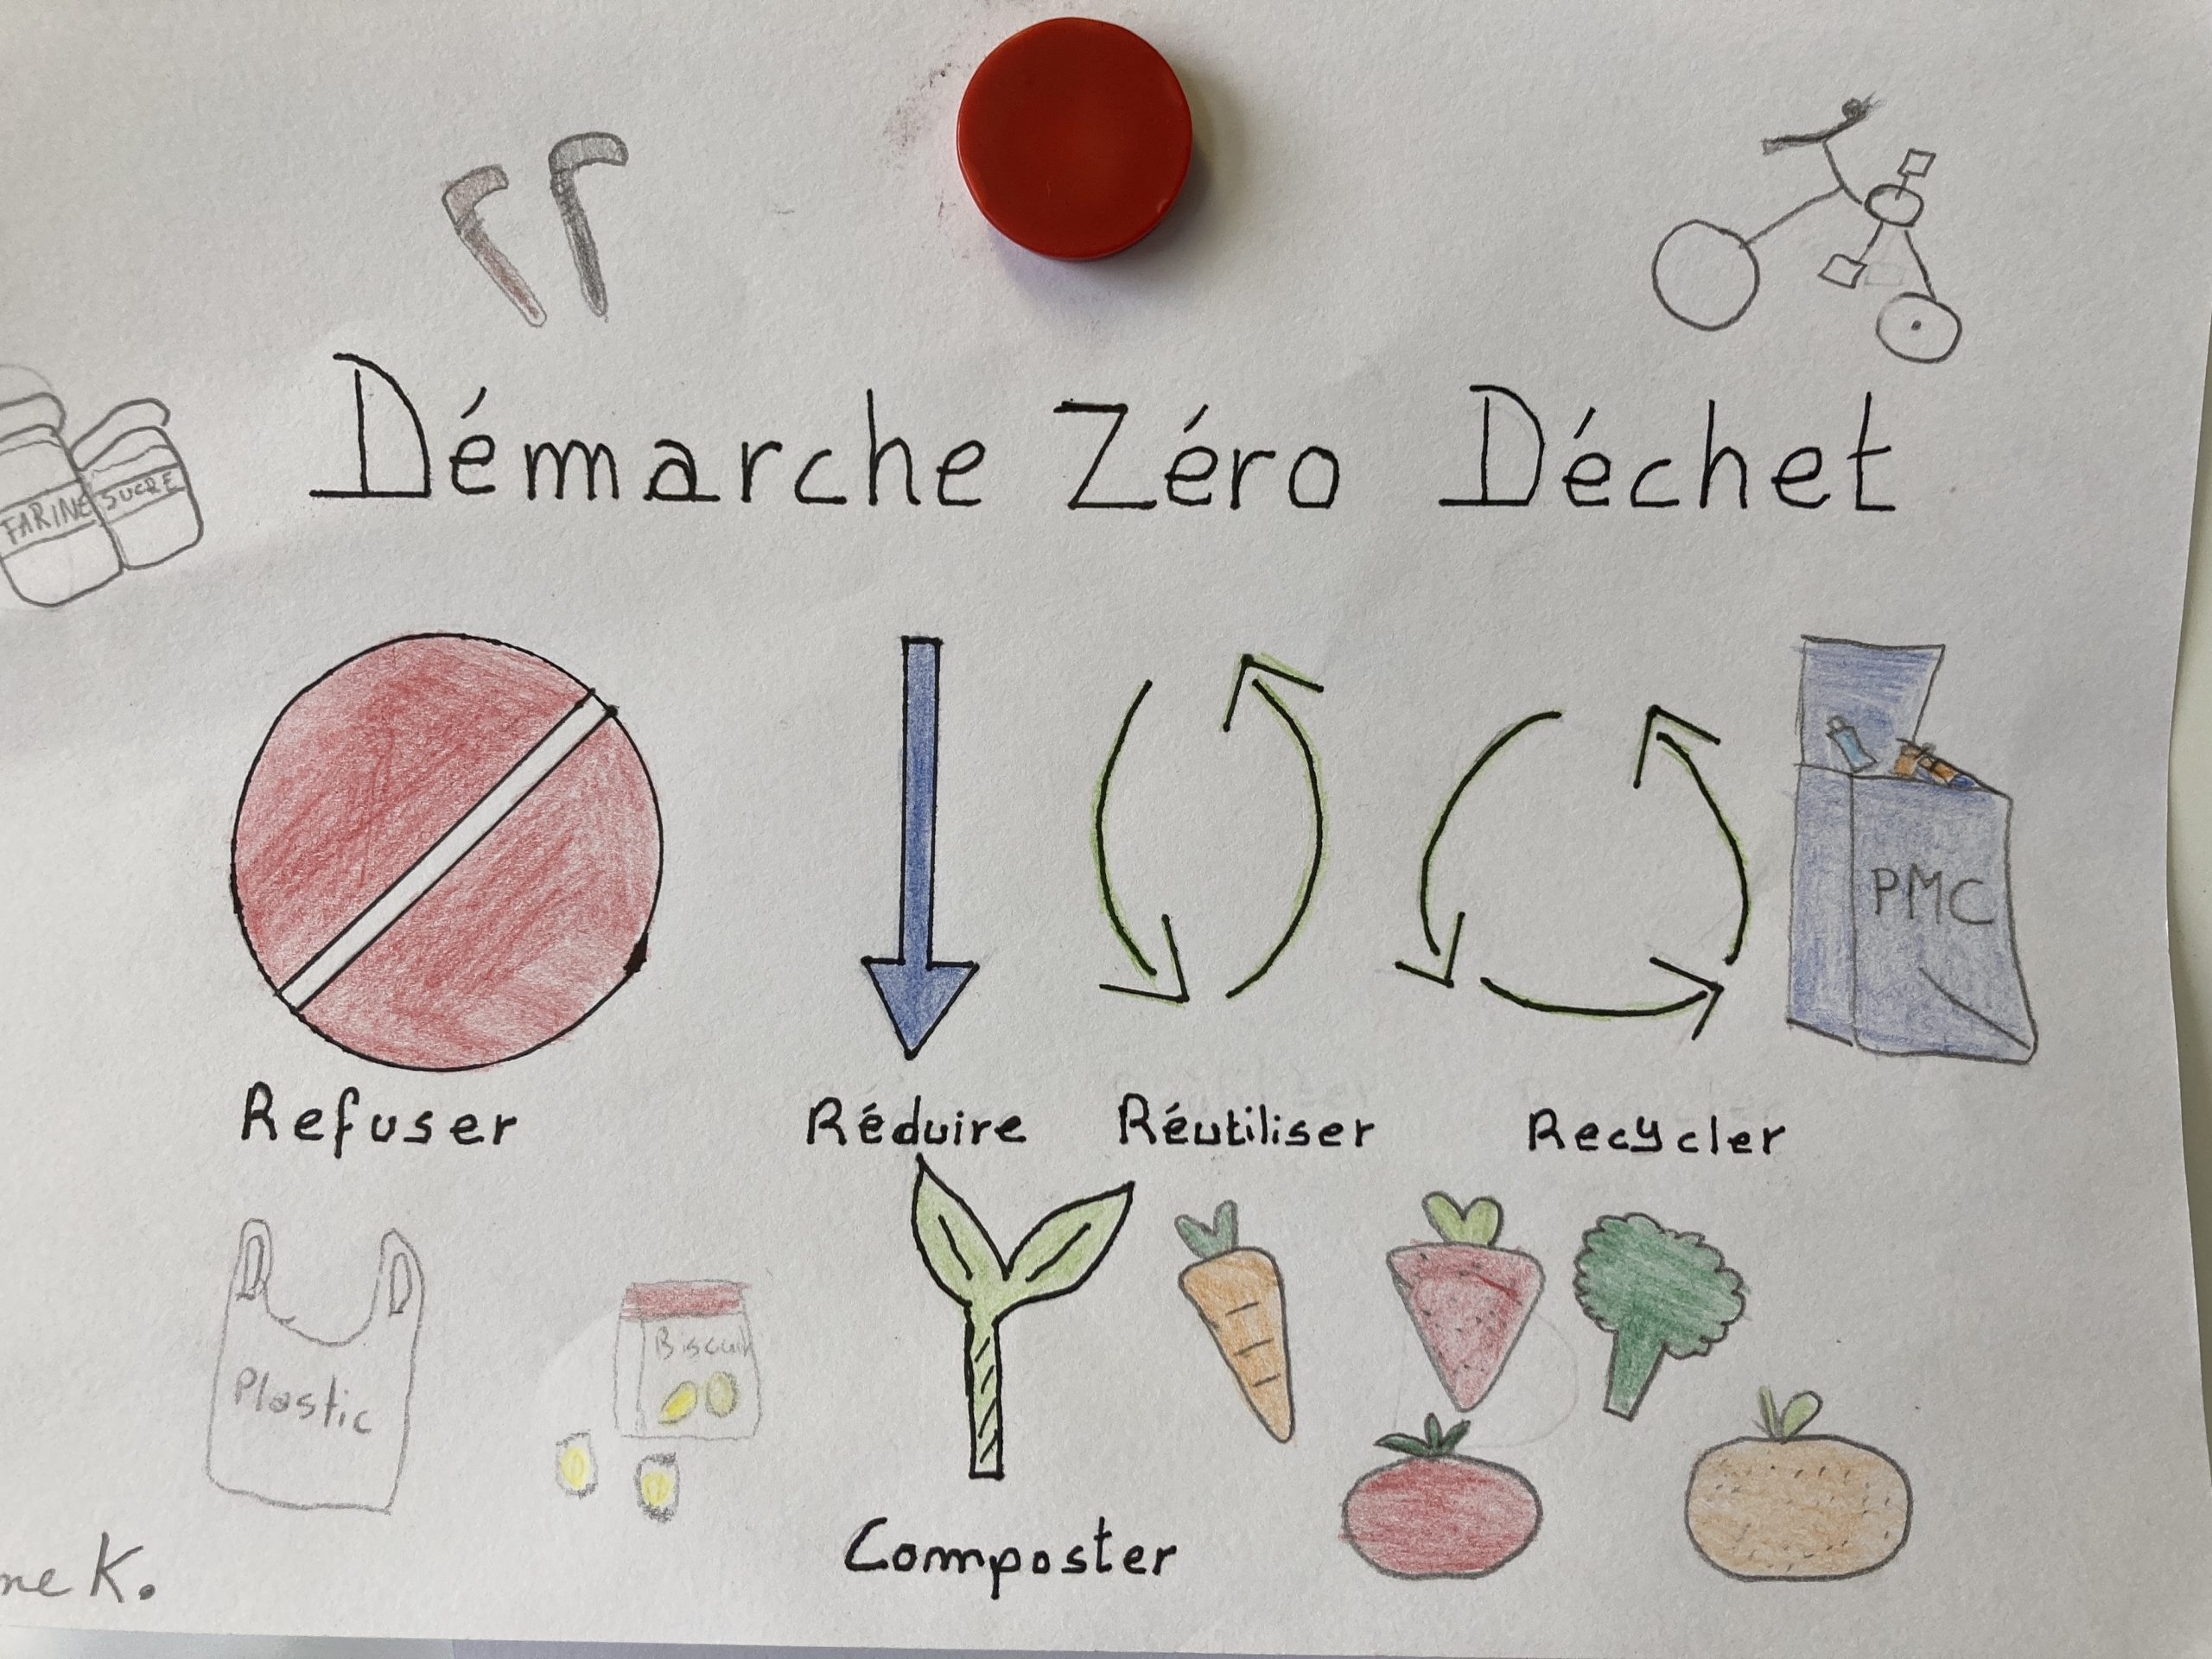 Démarche Zéro Déchet
FARINE
SUCRE
PMC
Refuser Réduire Réutiliser Recycler
Plastic
Composter
K.